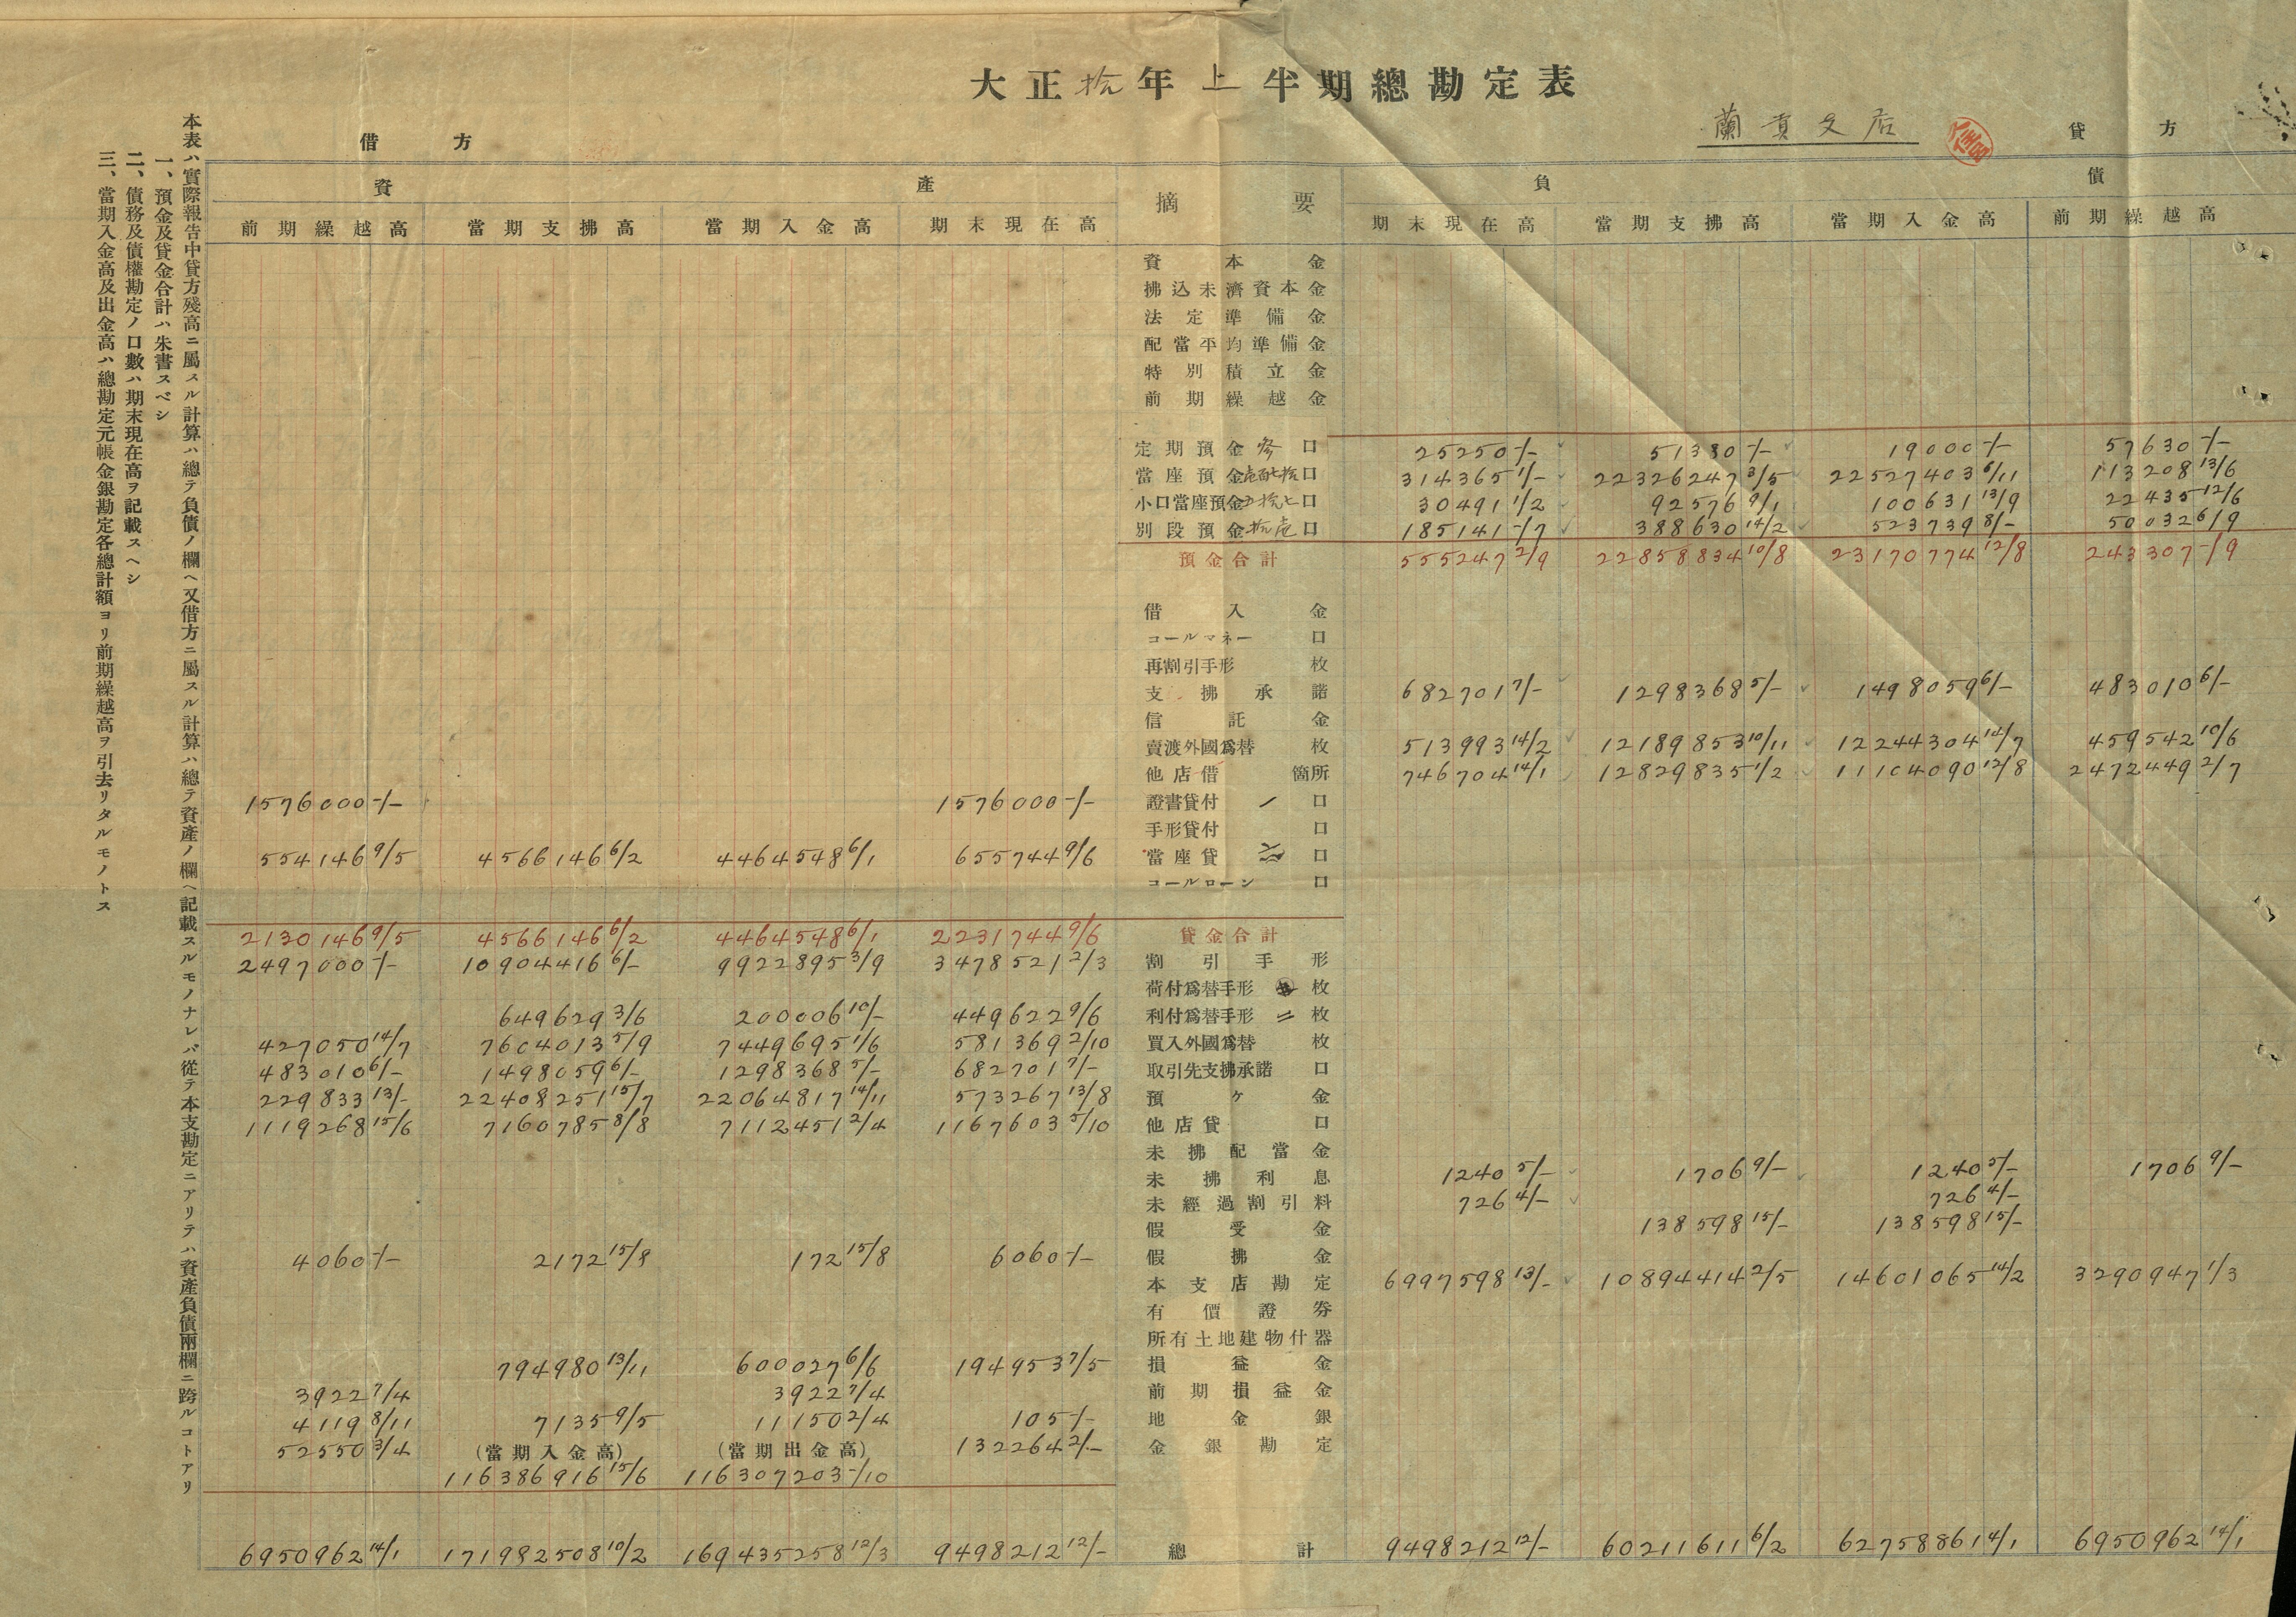 大正拾年上半期總勘定表
蘭貢支店
借方 貸方
資產 摘要 負債
前期繰越高 當期支拂高 當期入金高 期末現在高 期末現在高 當期支拂高 當期入金高 前期繰越高
資本金
拂込未濟資本金
法定準備金
配當平均準備金
特別積立金
前期繰越金
定期預金 參 口 25250-/- 51380-/- 19000-/- 57630-/-
當座預金 壱百七拾 口 314365 1/- 22326247 3/5 22527403 6/11 113208 13/6
小口當座預金 五拾七 口 30491 1/2 92576 9/1 100631 13/9 22435 12/6
別段預金 拾壱 口 185141 -/7 388630 14/2 523739 8/- 50032 6/9
預金合計 555247 2/9 22858834 10/8 23170774 12/8 243307 -/9
借入金
コールマネー 口
再割引手形 枚
支拂承諾 682701 7/- 1298368 5/- 1498059 6/- 483010 6/-
信託金
賣渡外國爲替 枚 513993 14/2 12189853 10/11 12244304 14/7 459542 10/6
他店借 箇所 746704 14/1 12829835 1/2 11104090 12/8 2472449 2/7
1576000-/- 1576000-/- 證書貸付 一 口
手形貸付 口
554146 9/5 4566146 6/2 4464548 6/1 655744 9/6 當座貸 口
コールローン 口
2130146 9/5 4566146 6/2 4464548 6/1 2231744 9/6 貸金合計
2497000-/- 10904416 6/- 9922895 3/9 3478521 2/3 割引手形
荷付爲替手形 枚
649629 3/6 200006 10/- 449622 9/6 利付爲替手形 二 枚
427050 14/7 7604013 5/9 7449695 1/6 581369 2/10 買入外國爲替 枚
483010 6/- 1498059 6/- 1298368 5/- 682701 7/- 取引先支拂承諾 口
229833 13/- 22408251 15/7 22064817 14/11 573267 13/8 預ヶ金
1119268 15/6 7160785 8/8 7112451 2/4 1167603 5/10 他店貸 口
未拂配當金
未拂利息 1240 5/- 1706 9/- 1240 5/- 1706 9/-
未經過割引料 726 4/- 726 4/-
假受金 138598 15/- 138598 15/-
4060-/- 2172 15/8 172 15/8 6060-/- 假拂金
本支店勘定 6997598 13/- 10894414 2/5 14601065 14/2 3290947 1/3
有價證券
所有土地建物什器
794980 13/11 600027 6/6 194953 7/5 損益金
3922 7/4 3922 7/4 前期損益金
4119 8/11 7135 9/5 11150 2/4 105-/- 地金銀
52550 3/4 (當期入金高) (當期出金高) 132264 2/- 金銀勘定
116386916 15/6 116307203 -/10
6950962 14/1 171982508 10/2 169435258 12/3 9498212 12/- 總計 9498212 12/- 60211611 6/2 62758861 4/1 6950962 14/1
本表ハ實際報告中貸方殘高ニ屬スル計算ハ總テ負債ノ欄ヘ又借方ニ屬スル計算ハ總テ資產ノ欄ヘ記載スルモノナレバ從テ本支勘定ニアリテハ資產負債兩欄ニ跨ルコトアリ
一、預金及貸金合計ハ朱書スベシ
二、債務及債權勘定ノ口數ハ期末現在高ヲ記載スヘシ
三、當期入金高及出金高ハ總勘定元帳金銀勘定各總計額ヨリ前期繰越高ヲ引去リタルモノトス